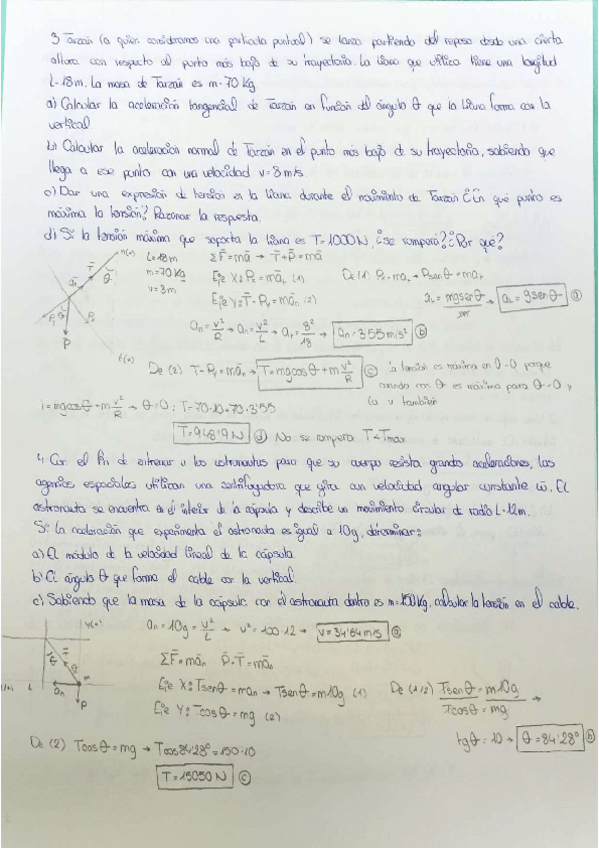 3 Tarzán (a quien consideramos una partícula puntual) se lanza partiendo del reposo desde una cierta
altura con respecto al punto más bajo de su trayectoria. La liana que utiliza tiene una longitud
L=18m. La masa de Tarzán es m=70 Kg.
a) Calcular la aceleración tangencial de Tarzán en función del ángulo θ que la liana forma con la
vertical
b) Calcular la aceleración normal de Tarzán en el punto más bajo de su trayectoria, sabiendo que
llega a ese punto con una velocidad v=8 m/s.
c) Dar una expresión de tensión en la liana durante el movimiento de Tarzán ¿En qué punto es
máxima la tensión? Razonar la respuesta.
d) Si la tensión máxima que soporta la liana es T=1000N, ¿se romperá? ¿Por qué?
L=18m
m=70 Kg
v=8m
ΣF̄=mā → T̄+P̄=mā
Eje X: Pₜ=māₜ (1)
Eje Y: T̄-Pₙ=māₙ (2)
De (1) Pₜ=maₜ → Psenθ=maₜ
aₜ=mgsenθ/m → aₜ=gsenθ (a)
aₙ=v²/R → aₙ=v²/L → aₙ=8²/18 → aₙ=3'55 m/s² (b)
De (2) T-Pₙ=māₙ → T=mgcosθ+m v²/R (c) la tensión es máxima en θ=0 porque
cuando cos θ es máxima para θ=0 y
la v también
T=mgcosθ+m v²/R → θ=0: T=70·10+70·3'55
T=948'9 N (d) No se rompera T<Tmax
4. Con el fin de entrenar a los astronautas para que su cuerpo resista grandes aceleraciones, las
agencias espaciales utilizan una centrifugadora que gira con velocidad angular constante ω. El
astronauta se encuentra en el interior de la cápsula y describe un movimiento circular de radio L=12m.
Si la aceleración que experimenta el astronauta es igual a 10g, determinar:
a) El módulo de la velocidad lineal de la cápsula
b) El ángulo θ que forma el cable con la vertical.
c) Sabiendo que la masa de la cápsula con el astronauta dentro es m=150Kg, calcular la tensión en el cable.
aₙ=10g=v²/L → v²=100·12 → v=34'64 m/s (a)
ΣF̄=māₙ P̄+T̄=māₙ
Eje X: Tsenθ=maₙ → Tsenθ=m10g (1)
Eje Y: Tcosθ=mg (2)
De (1/2) Tsenθ/Tcosθ=m10g/mg →
tgθ=10 → θ=84'28° (b)
De (2) Tcosθ=mg → Tcos84'28°=150·10
T=15050 N (c)